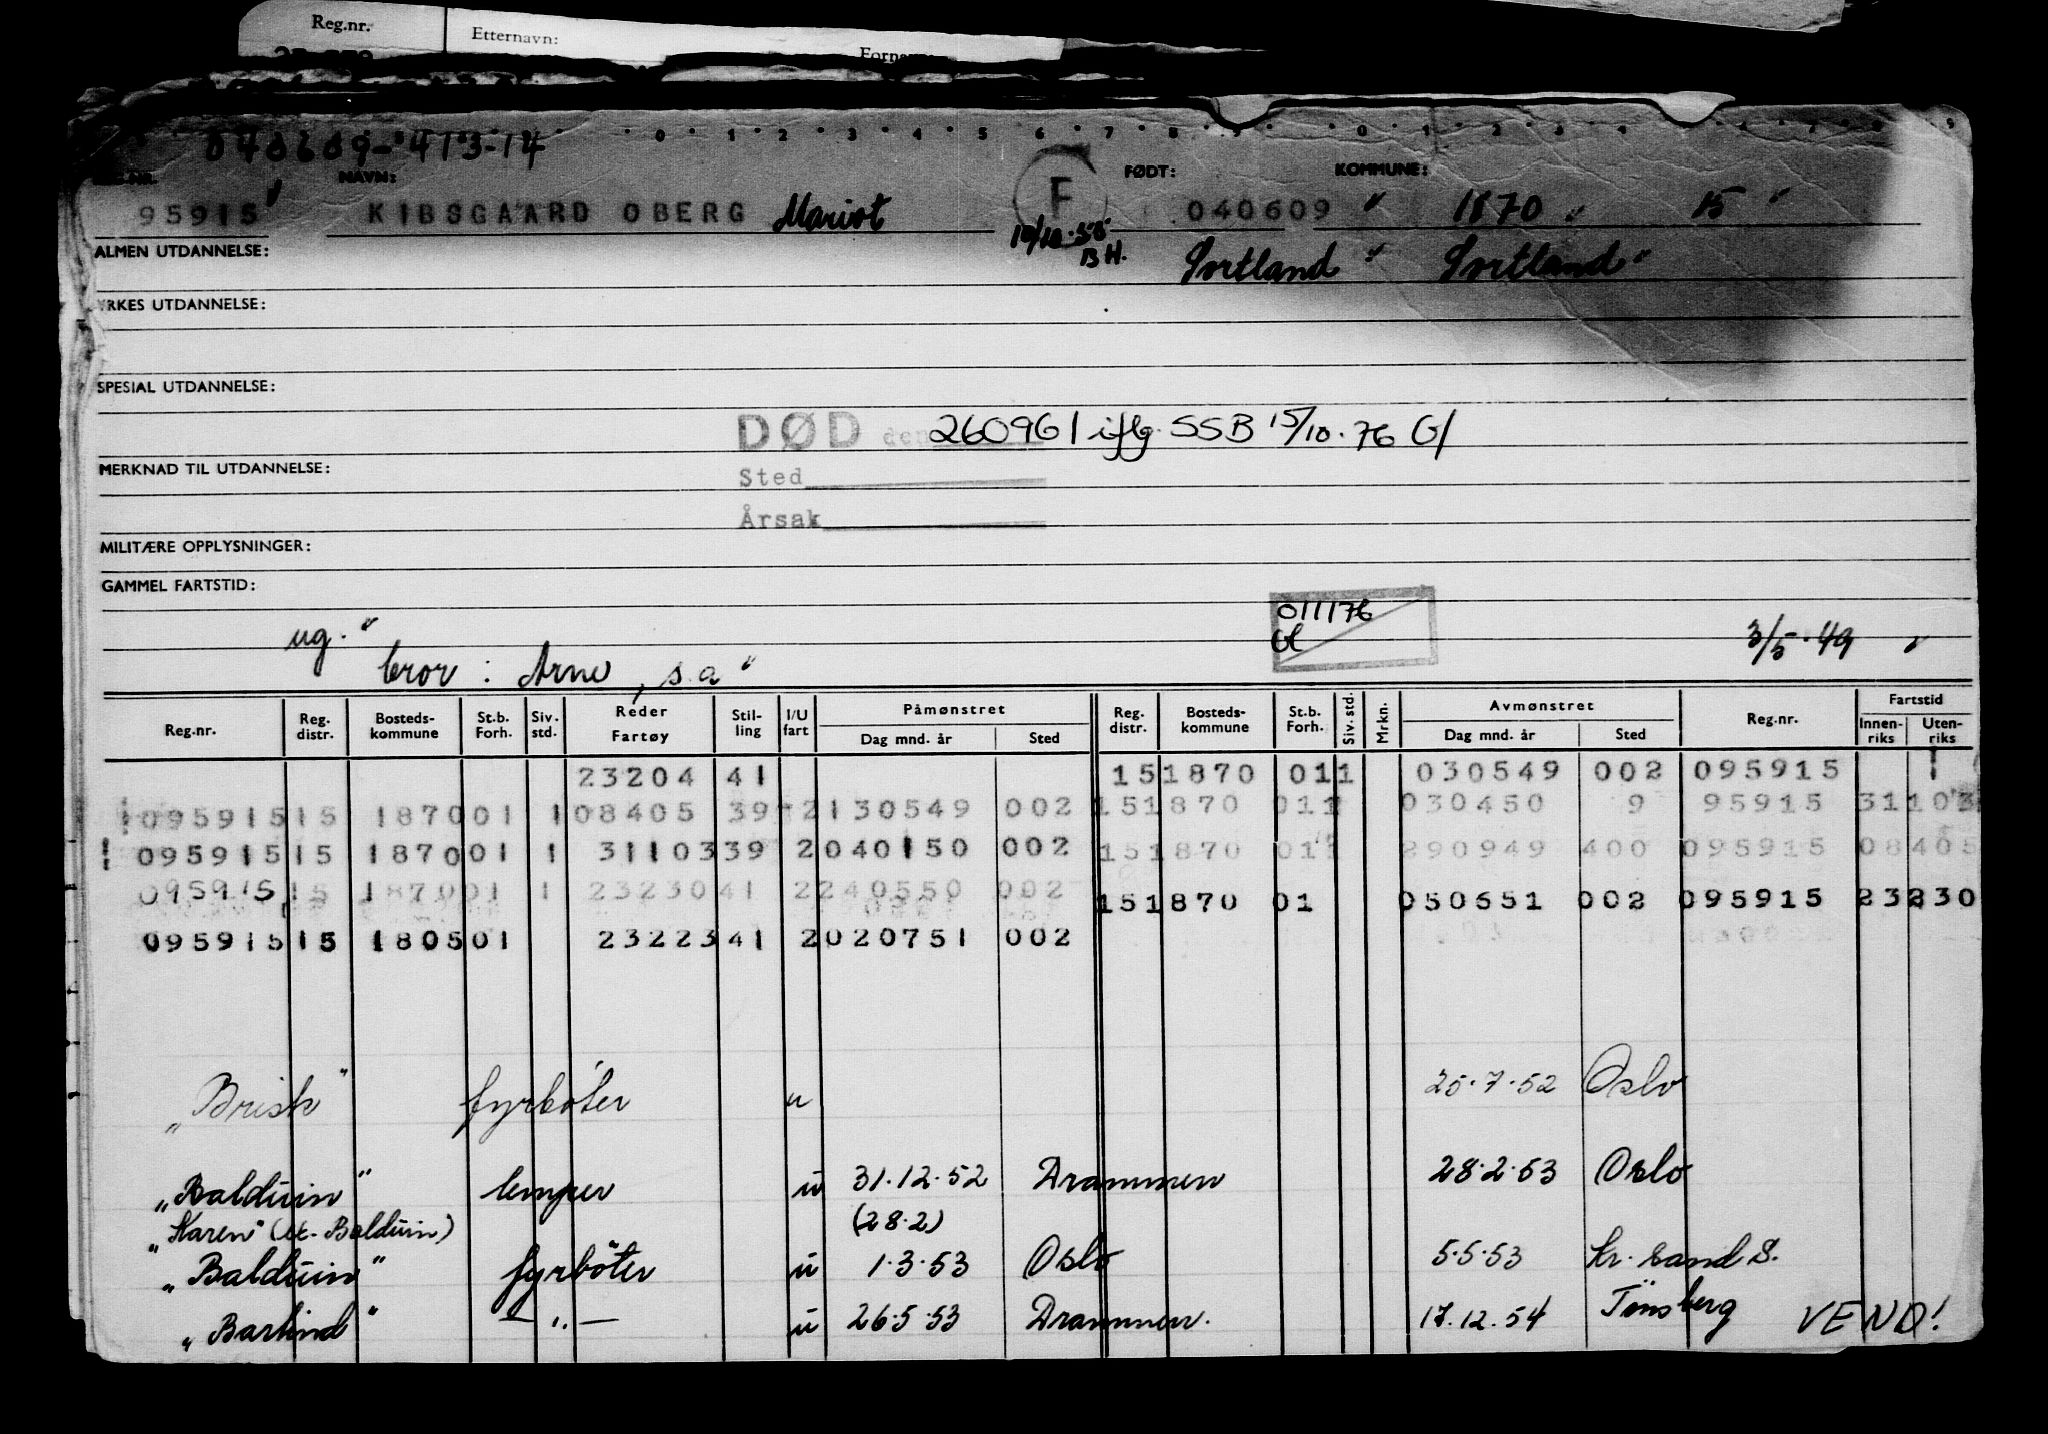 Reg.nr. Etternavn:
040609-41314
NAVN: F FØDT: KOMMUNE:
95915 KIBSGAARD OBERG Mariot 040609 1870 15
10/10.58 BH.
ALMEN UTDANNELSE: Sortland Sortland
YRKES UTDANNELSE:
SPESIAL UTDANNELSE:
DØD den 260961 iflg. SSB 15/10.76 Gl
MERKNAD TIL UTDANNELSE:
Sted
Årsak
MILITÆRE OPPLYSNINGER:
GAMMEL FARTSTID:
011176
Gl
ug. 3/5.49
bror: Arne, s.a
Reg.nr. Reg. distr. Bosteds-kommune St.b. Forh. Siv. std. Reder Fartøy Stil-ling I/U fart Påmønstret Dag mnd. år Sted Reg. distr. Bosteds-kommune St.b. Forh. Siv. std. Mrkn. Avmønstret Dag mnd. år Sted Reg.nr. Fartstid Innen-riks Uten-riks
23204 41 15 1870 01 1 030549 002 095915
095915 15 1870 01 1 08405 39 2 130549 002 15 1870 01 1 030450 9 95915 31103
095915 15 1870 01 1 31103 39 2 040150 002 15 1870 01 1 290949 400 095915 08405
095915 15 1870 01 1 23230 41 2 240550 002 15 1870 01 050651 002 095915 23230
095915 15 1805 01 23223 41 2 020751 002
„Brisk" fyrbøter u 25.7.52 Oslo
„Balduin" lemper u 31.12.52 Drammen 28.2.53 Oslo
„Karen" (ex. Balduin) (28.2)
„Balduin" fyrbøter u 1.3.53 Oslo 5.5.53 Kr.sand S.
„Barlind" — „ — u 26.5.53 Drammen. 17.12.54 Tønsberg VEND!